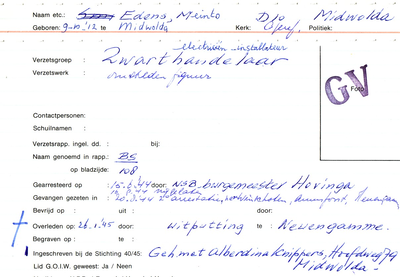 Naam etc.: Edens, Meinto Dlo Midwolda
Geboren: 9-11-'12 te Midwolda Kerk: Geref. Politiek:
electriciën - installateur
Verzetsgroep : Zwarthandelaar
Verzetswerk : omstreden figuur
GV
Foto
Contactpersonen:
Schuilnaam :
Verzetsrapp. ingel. dd. : bij:
Naam genoemd in rapp.: B5
op bladzijde: 108
Gearresteerd op : 15.2.'44 door: NSB-burgemeester Hovinga
Gevangen gezeten in : Amersfoort, Neuengamme
Bevrijd op : uit : door:
Overleden op : 26.1.'45 door: uitputting te Neuengamme.
Begraven op : te :
Ingeschreven bij de Stichting 40/45: Geh. met Alberdina Knippers, Hoofdweg 79
Lid G.O.I.W. geweest: Ja / Neen Midwolda-